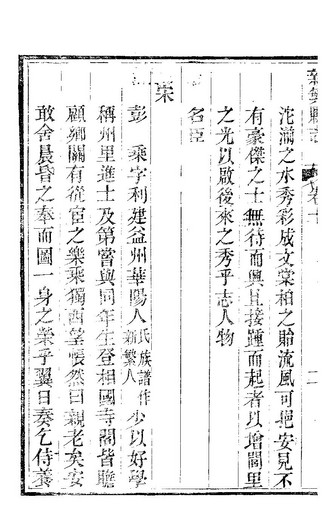 沱湔之水秀彩成文棠柏之貽流風可挹安見不
有豪傑之士無待而興且接踵而起者以增閭里
之光以啟後來之秀乎志人物
名臣
宋
彭乘字利建益州華陽人氏族譜作新繁人少以好學
稱州里進士及第嘗與同年生登相國寺閣皆瞻
顧鄉關有從宦之樂乘獨西望悵然曰親老矣安
敢舍晨昏之奉而圖一身之榮乎翼日奏乞侍養